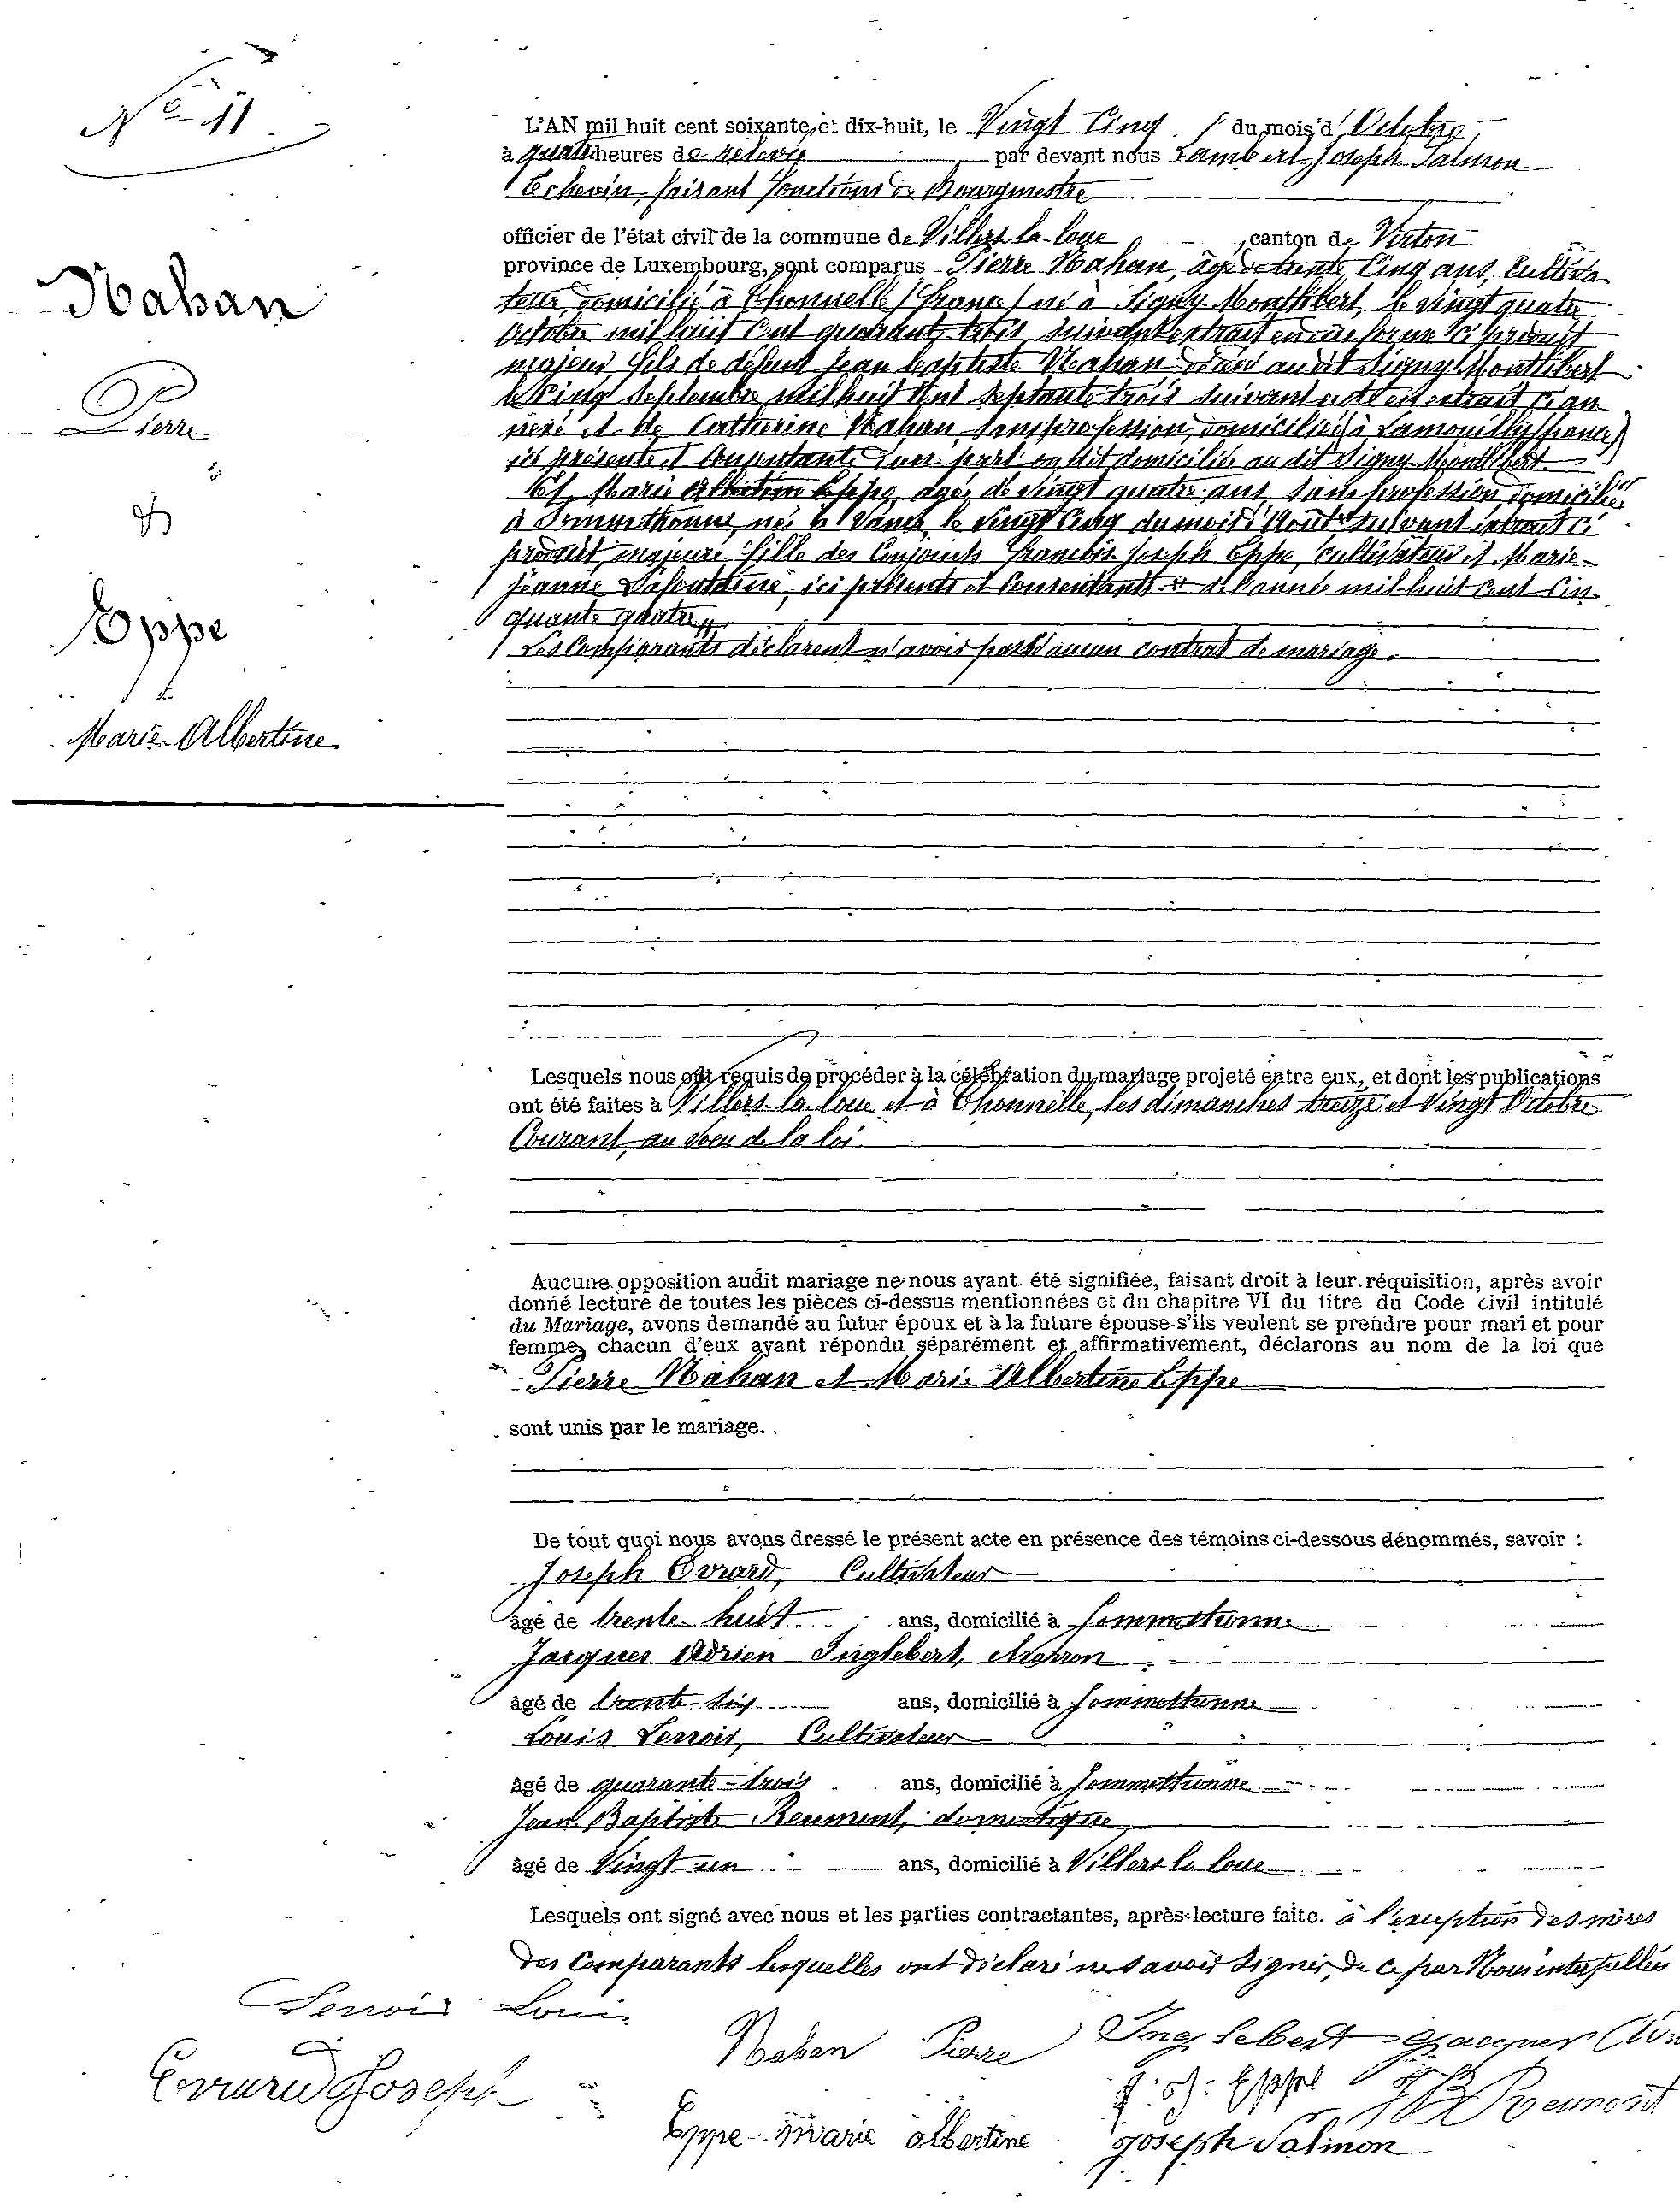 N° 11
Nahan
Pierre
&
Eppe
Marie-Albertine
L'AN mil huit cent soixante et dix-huit, le Vingt Cinq du mois d'Octobre,
à quatre heures de relevée par devant nous Lambert-Joseph Salmon
Echevin, faisant fonctions de Bourgmestre
officier de l'état civil de la commune de Villers-la-loue canton de Virton
province de Luxembourg, sont comparus Pierre Nahan, âgé de trente cinq ans, Cultiva-
teur, domicilié à Thonnelle (France) né à Signy Montlibert, le vingt quatre
octobre mil huit cent quarante trois, suivant extrait en due forme ci produit
majeur, fils de défunt Jean Baptiste Nahan audit Signy Montlibert
le Cinq Septembre mil huit cent septante trois suivant extrait ci an-
nexé et de Catherine Nahan, sans profession, domiciliée à Lamouilly (france)
ici présente et consentante d'une part ou dit domicilié au dit Signy Montlibert
Et Marie Albertine Eppe, agée de vingt quatre ans, sans profession, domiciliée
à Sommethonne, née à le vingt cinq du mois d'Août suivant extrait ci
produit, majeure, fille des Conjoints Joseph Eppe, cultivateur et Marie-
Jeanne Lafontaine, ici présents et consentants de l'année mil huit cent cin-
quante quatre
Les Comparants déclarent n'avoir passé aucun contrat de mariage.
Lesquels nous ont requis de procéder à la célébration du mariage projeté entre eux, et dont les publications
ont été faites à Villers-la-loue et à Thonnelle, les dimanches treize et vingt Octobre
Courant, au voeu de la loi.
Aucune opposition audit mariage ne nous ayant été signifiée, faisant droit à leur réquisition, après avoir
donné lecture de toutes les pièces ci-dessus mentionnées et du chapitre VI du titre du Code civil intitulé
du Mariage, avons demandé au futur époux et à la future épouse s'ils veulent se prendre pour mari et pour
femme, chacun d'eux ayant répondu séparément et affirmativement, déclarons au nom de la loi que
Pierre Nahan et Marie Albertine Eppe
sont unis par le mariage.
De tout quoi nous avons dressé le présent acte en présence des témoins ci-dessous dénommés, savoir :
Joseph Evrard, Cultivateur
âgé de trente-huit ans, domicilié à Sommethonne
Jacques Adrien Inglebert, charron
âgé de trente-six ans, domicilié à Sommethonne
Louis Lenoir, Cultivateur
âgé de quarante-trois ans, domicilié à Sommethonne
Jean-Baptiste Reumont, domestique,
âgé de Vingt-un ans, domicilié à Villers-la-loue
Lesquels ont signé avec nous et les parties contractantes, après lecture faite. à l'exception des mères
des Comparants lesquelles ont déclaré ne savoir signer, de ce par Nous interpellées
Lenoir Louis
Nahan Pierre Inglebert Jacques
Evrard Joseph
f. j. Eppe JB Reumont
Eppe marie albertine Joseph Salmon